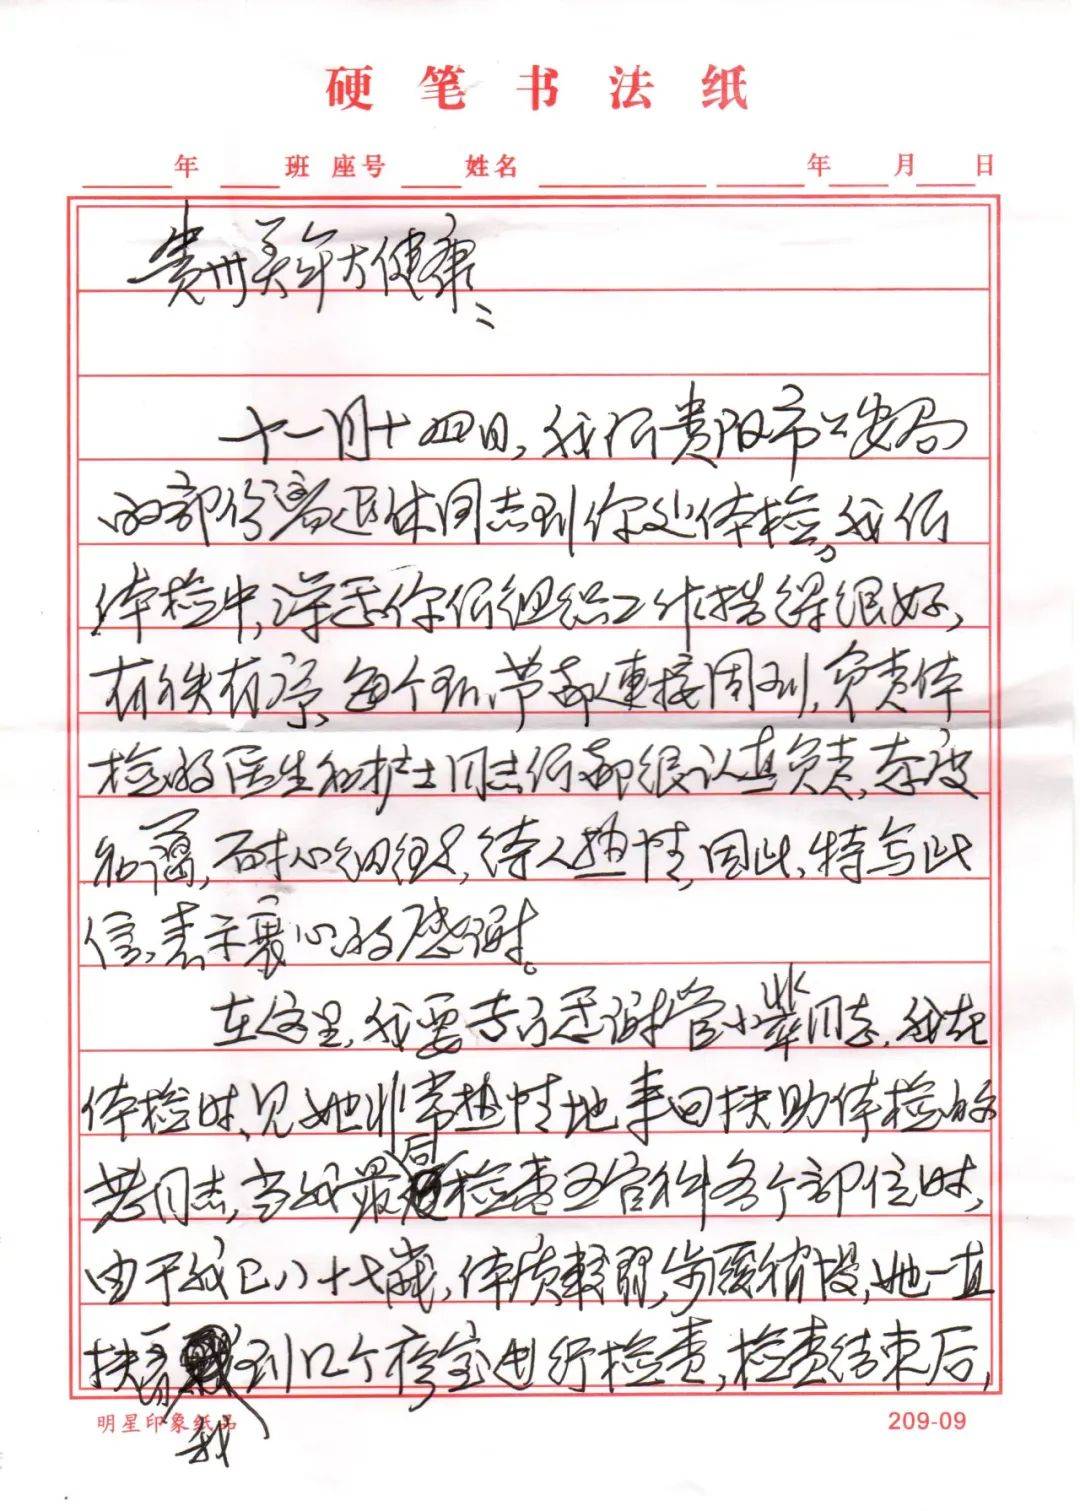 硬笔书法纸
年 班 座号 姓名 年 月 日
贵州美年大健康：
十一月十四日，我们贵阳市公安局
的部份离退休同志到你处体检。我们
体检中，深感你们组织工作搞得很好，
有秩有序，每个环节都连接周到，负责体
检的医生和护士同志们都很认真负责，态度
和蔼，耐心细致，待人热情，因此，特写此
信，表示衷心的感谢。
在这里，我要专门感谢管小翠同志，我在
体检时，见她非常热情地来回扶助体检的
老同志，当我最后检查五官科各个部位时，
由于我已八十七岁，体质较弱，步履稍慢，她一直
扶着我到几个检室进行检查，检查结束后，
明星印象纸品 209-09